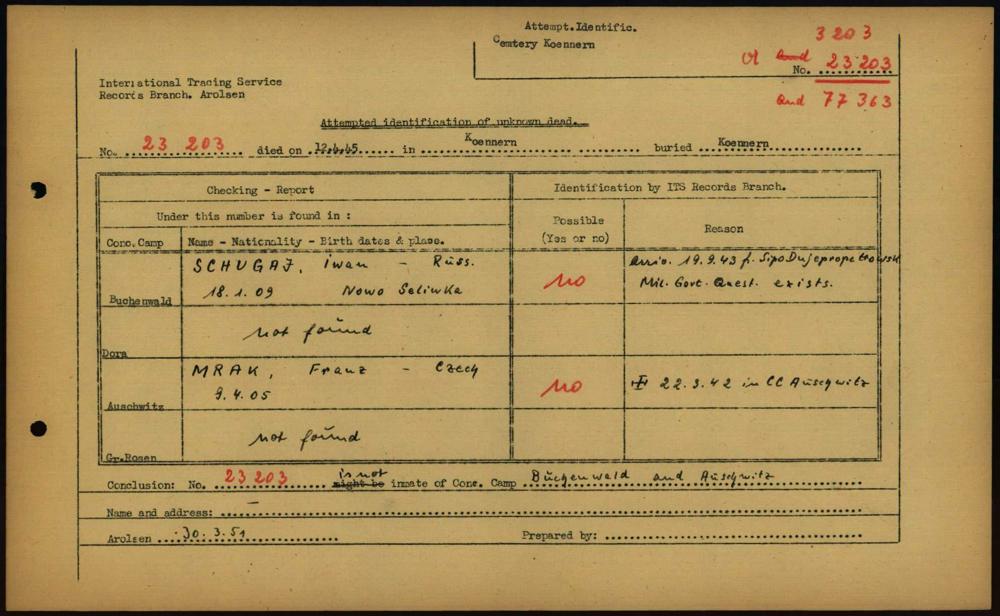 Attempt.Identific.
Cemtery Koennern
3203
No. 23203
and 77363
International Tracing Service
Records Branch. Arolsen
Attempted identification of unknown dead.
No. 23 203 died on 12.4.45 in Koennern buried Koennern
Checking - Report
Identification by ITS Records Branch.
Under this number is found in :
Possible
(Yes or no)
Reason
Conc.Camp
Name - Nationality - Birth dates & place.
SCHUGAJ, Iwan - Russ.
18.1.09 Nowo Seliwka
Buchenwald
no
19.9.43 f. Sipo Dnjepropetrowsk
Mil. Govt. Quest. exists.
not found
Dora
MRAK, Franz - Czech
9.4.05
Auschwitz
no
22.3.42 in CC Auschwitz
not found
Gr.Rosen
Conclusion: No. 23203 is not might be inmate of Conc. Camp Buchenwald and Auschwitz
Name and address: –
Arolsen 30.3.51
Prepared by: